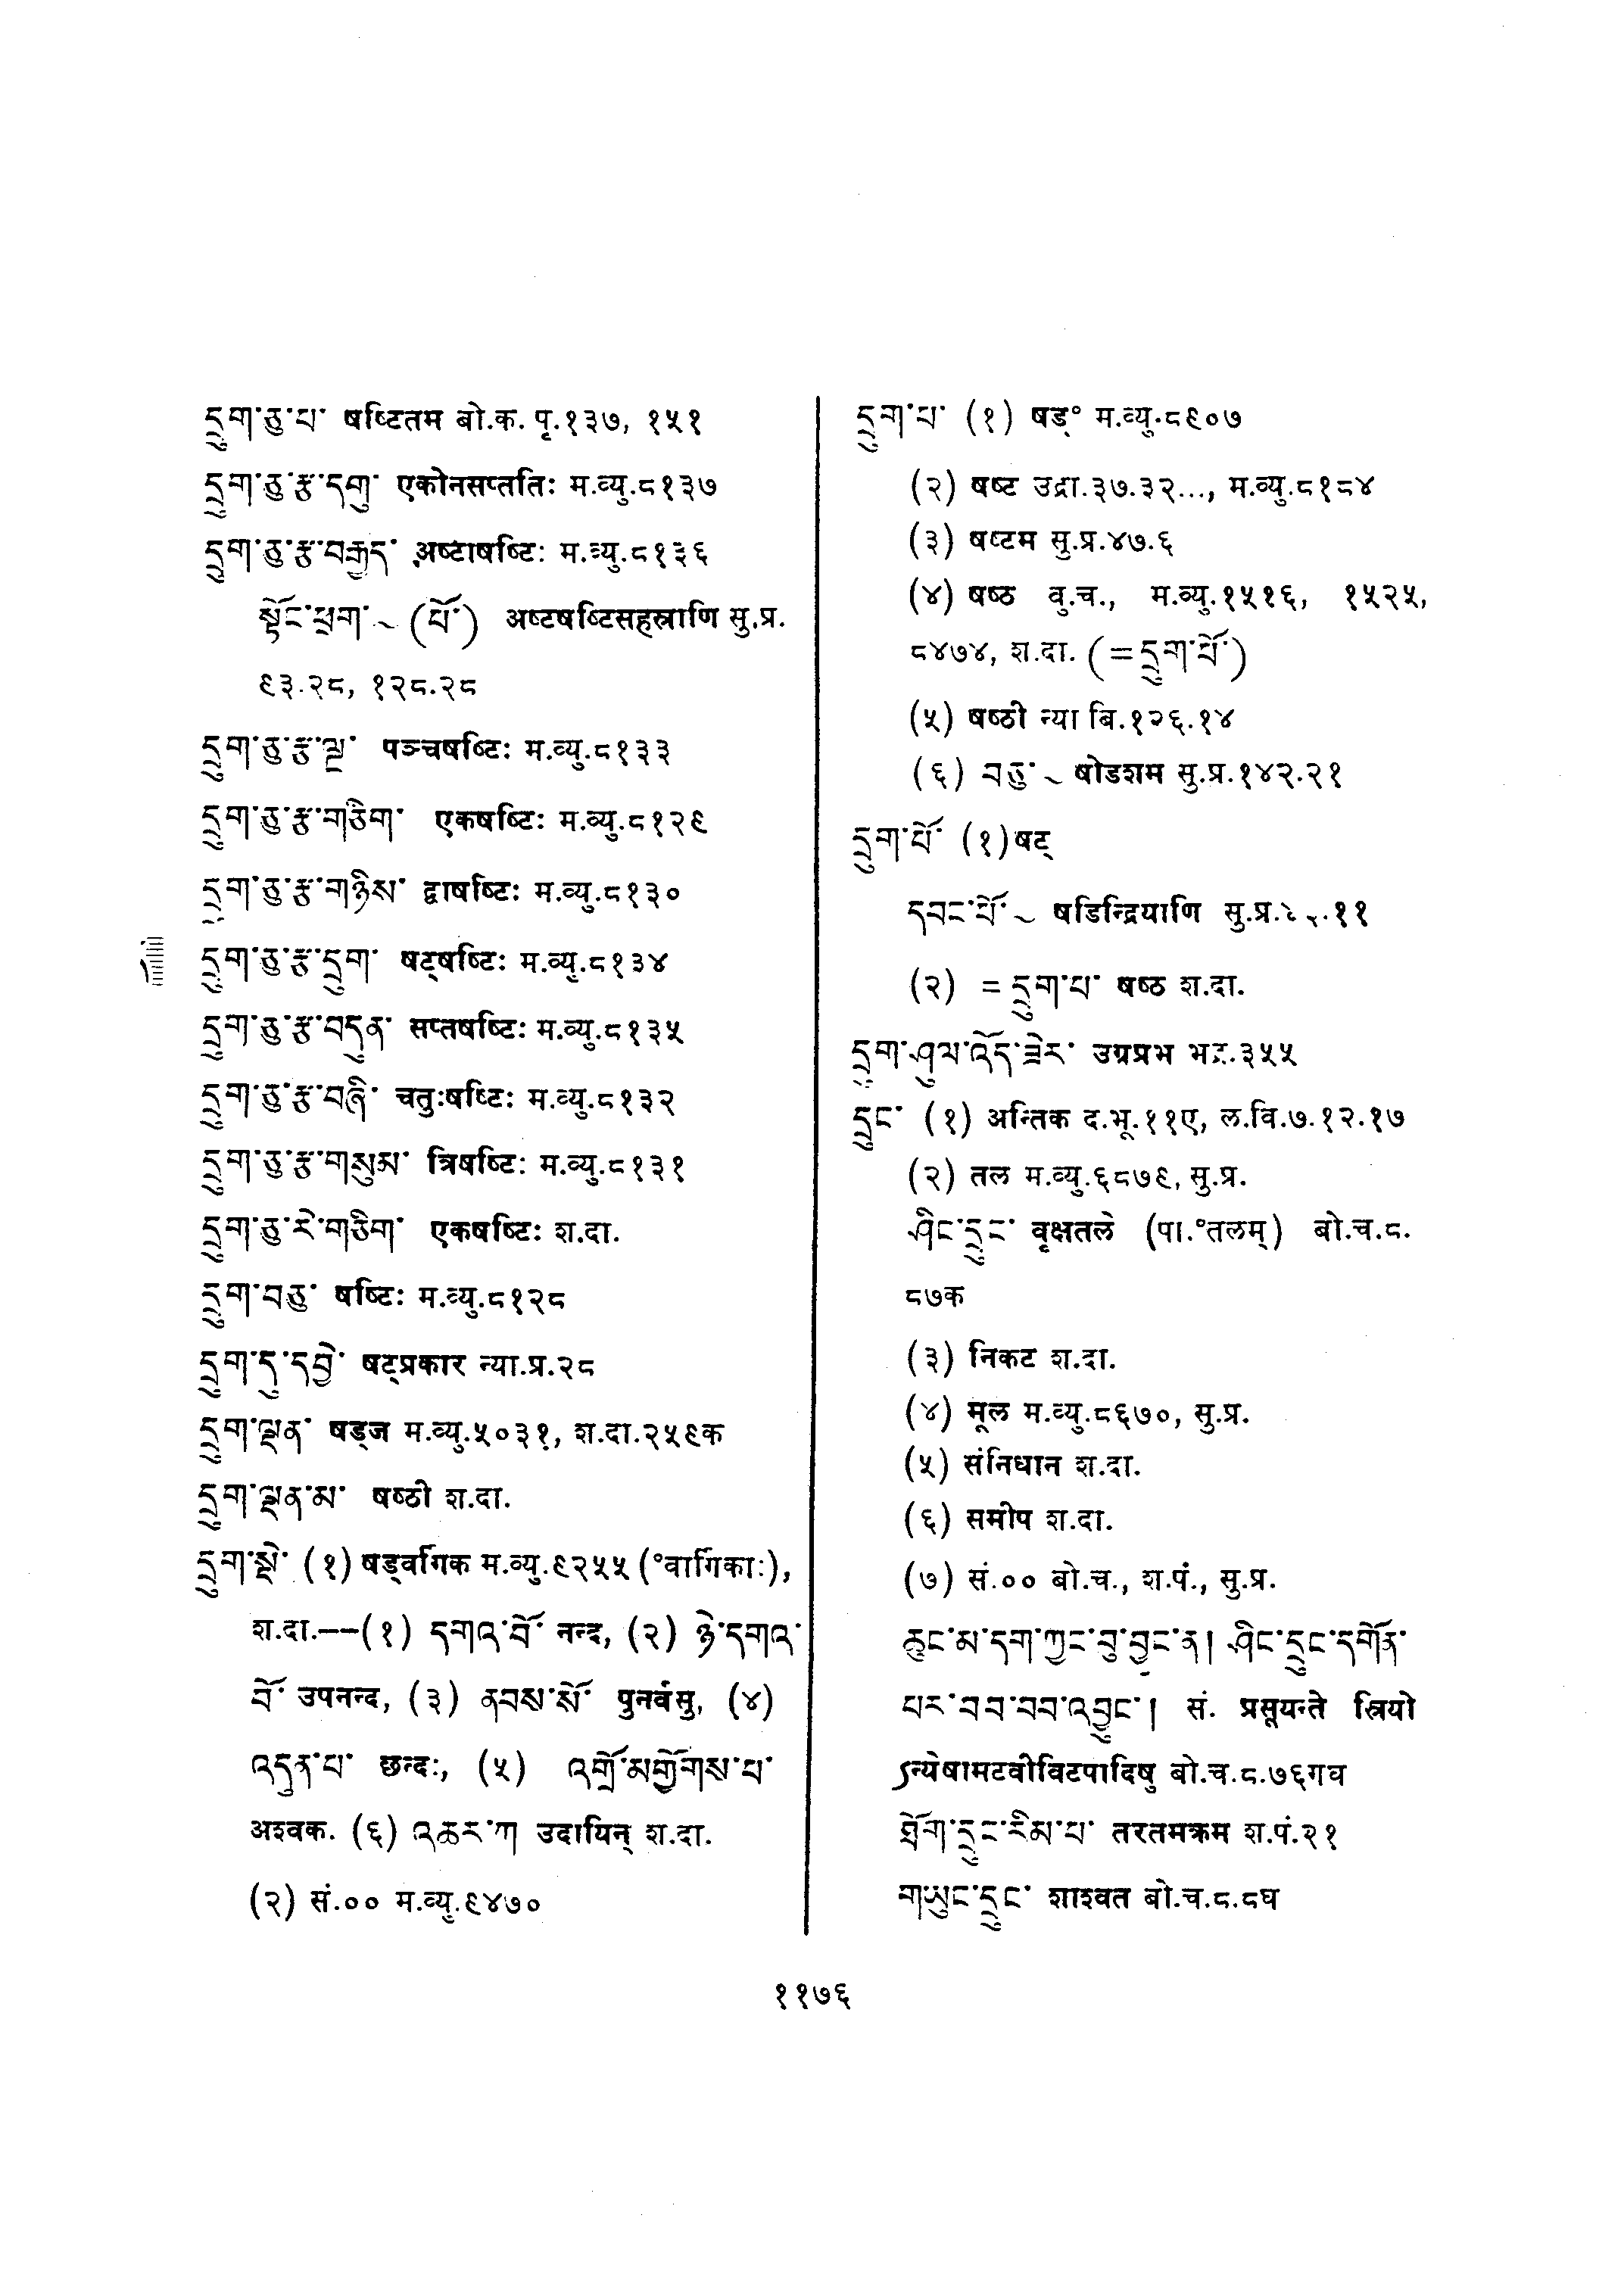 དྲུག་ཅུ་པ་ षष्टितम बो.क. पृ.१३७, १५१
དྲུག་ཅུ་རྩ་དགུ་ एकोनसप्ततिः म.व्यु.८१३७
དྲུག་ཅུ་རྩ་བརྒྱད་ अष्टाषष्टिः म.व्यु.८१३६
སྟོང་ཕྲག་ ~ (པོ་) अष्टषष्टिसहस्राणि सु.प्र.
९३.२८, १२८.२८
དྲུག་ཅུ་རྩ་ལྔ་ पञ्चषष्टिः म.व्यु.८१३३
དྲུག་ཅུ་རྩ་གཅིག་ एकषष्टिः म.व्यु.८१२९
དྲུག་ཅུ་རྩ་གཉིས་ द्वाषष्टिः म.व्यु.८१३०
དྲུག་ཅུ་རྩ་དྲུག་ षट्षष्टिः म.व्यु.८१३४
དྲུག་ཅུ་རྩ་བདུན་ सप्तषष्टिः म.व्यु.८१३५
དྲུག་ཅུ་རྩ་བཞི་ चतुःषष्टिः म.व्यु.८१३२
དྲུག་ཅུ་རྩ་གསུམ་ त्रिषष्टिः म.व्यु.८१३१
དྲུག་ཅུ་རེ་གཅིག་ एकषष्टिः श.दा.
དྲུག་བཅུ་ षष्टिः म.व्यु.८१२८
དྲུག་ཏུ་དབྱེ་ षट्प्रकार न्या.प्र.२८
དྲུག་ལྡན་ षड्ज म.व्यु.५०३१, श.दा.२५९क
དྲུག་ལྡན་མ་ षष्ठी श.दा.
དྲུག་སྡེ་ (१) षड्वर्गिक म.व्यु.९२५५ (°वार्गिकाः),
श.दा.--(१) དགའ་བོ་ नन्द, (२) ཉེ་དགའ་
བོ་ उपनन्द, (३) ནབས་སོ་ पुनर्वसु, (४)
འདུན་པ་ छन्दः, (५) འགྲོ་མགྱོགས་པ་
अश्वक. (६) འཆར་ཀ उदायिन् श.दा.
(२) सं.०० म.व्यु.९४७०
དྲུག་པ་ (१) षड्° म.व्यु.८९०७
(२) षष्ट उद्रा.३७.३२..., म.व्यु.८१८४
(३) षष्टम सु.प्र.४७.६
(४) षष्ठ वु.च., म.व्यु.१५१६, १५२५,
८४७४, श.दा. (=དྲུག་པོ་)
(५) षष्ठी न्या बि.१२६.१४
(६) བཅུ་ ~ षोडशम सु.प्र.१४२.२१
དྲུག་པོ་ (१) षट्
དབང་པོ་ ~ षडिन्द्रियाणि सु.प्र. .११
(२) = དྲུག་པ་ षष्ठ श.दा.
དྲག་ཤུལ་འོད་ཟེར་ उग्रप्रभ .३५५
དྲུང་ (१) अन्तिक द.भू.११ए, ल.वि.७.१२.१७
(२) तल म.व्यु.६८७९, सु.प्र.
ཤིང་དྲུང་ वृक्षतले (पा.°तलम्) बो.च.८.
८७क
(३) निकट श.दा.
(४) मूल म.व्यु.८६७०, सु.प्र.
(५) संनिधान श.दा.
(६) समीप श.दा.
(७) सं.०० बो.च., श.पं., सु.प्र.
ཆུང་མ་དག་ཀྱང་བུ་བྱུང་ན། ཤིང་དྲུང་དགོན་
པར་བབ་བབ་འབྱུང་། सं. प्रसूयन्ते स्त्रियो
ऽन्येषामटवीविटपादिषु बो.च.८.७६गघ
ཐོག་དྲུང་རིམ་པ་ तरतमक्रम श.पं.२१
གཡུང་དྲུང་ शाश्वत बो.च.८.८घ
११७६